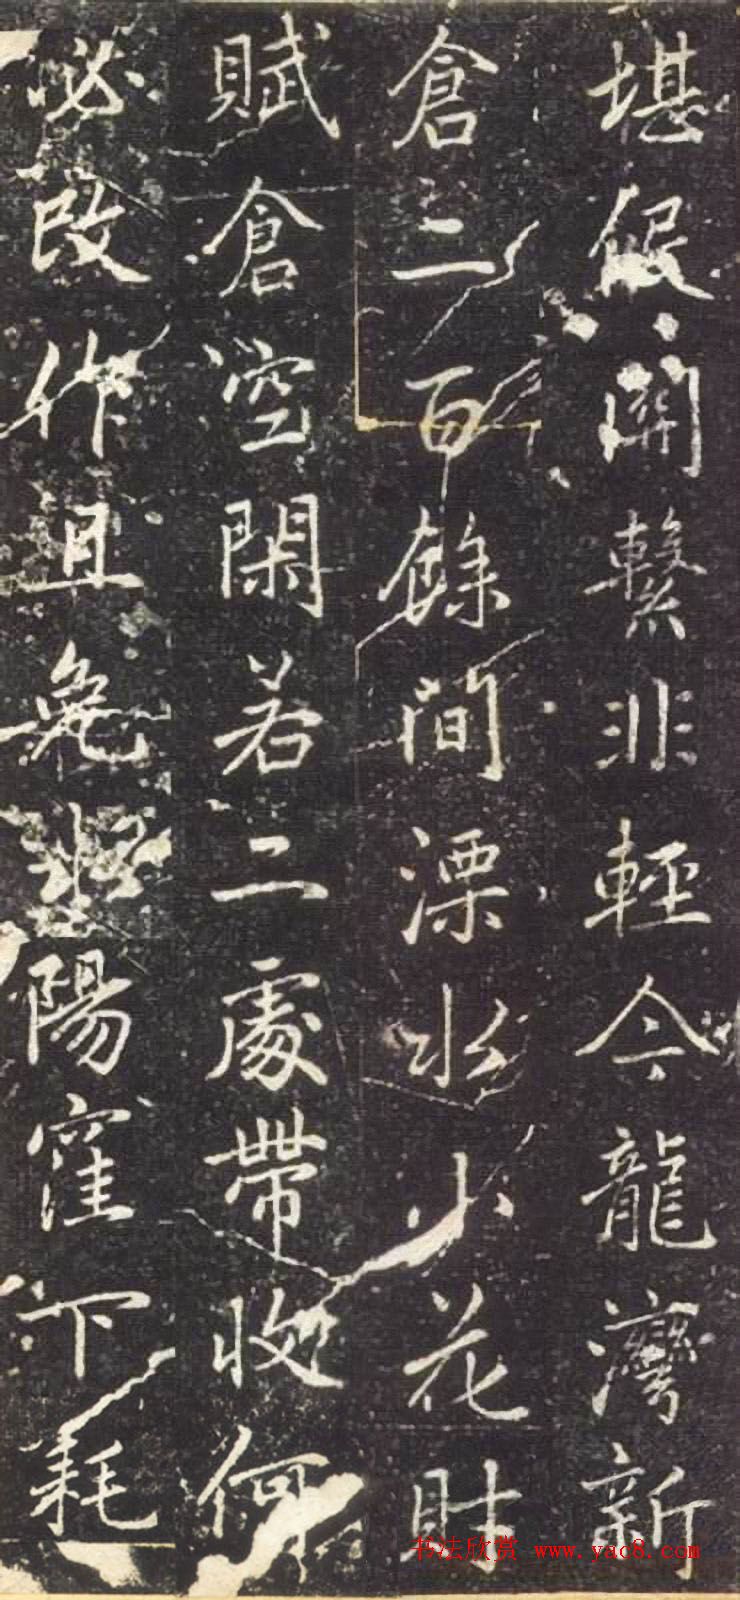 堪假開繫非輕今龍灣新
倉二百餘間漂水小花財
賦倉空閑若二處帶收何
必改作且免 陽窪下耗
书法欣赏 www.yac8.com